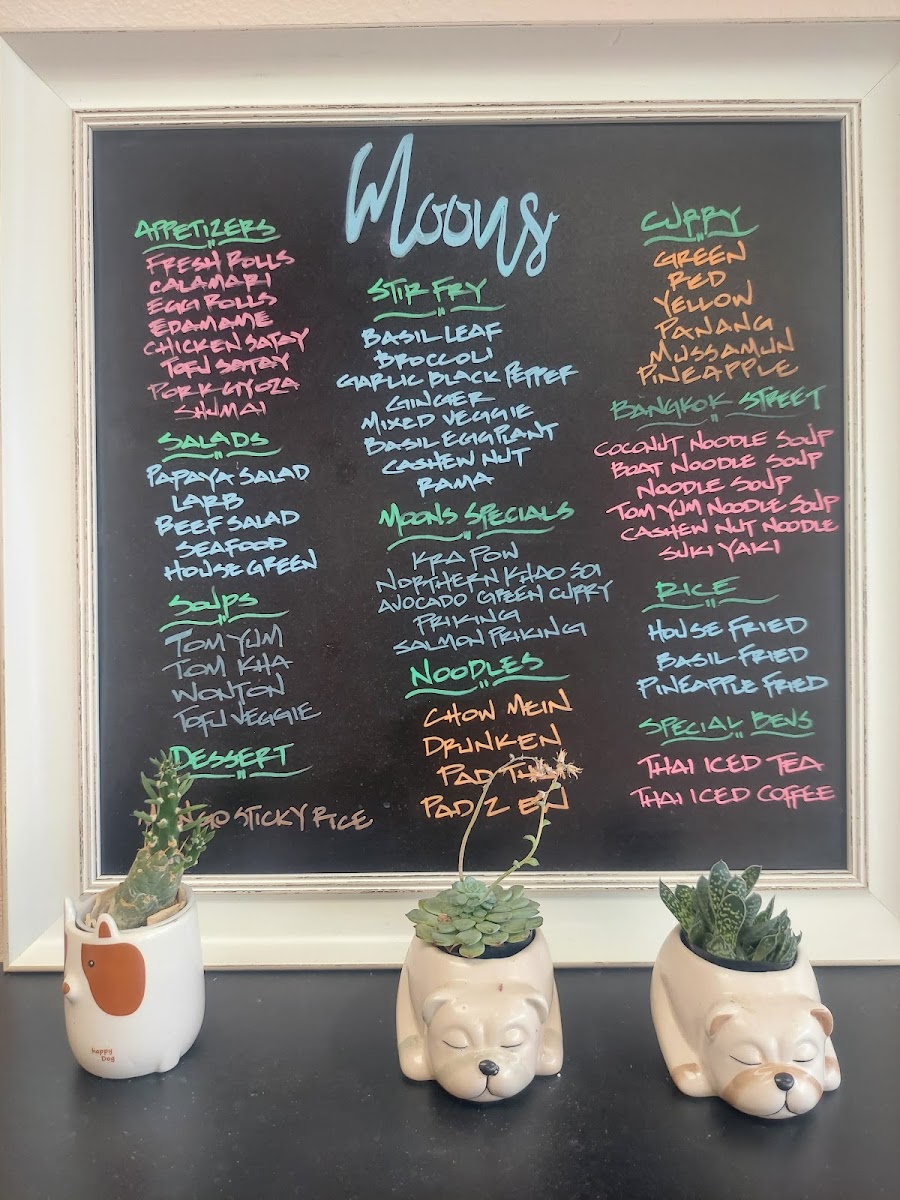 Moons
APPETIZERS
FRESH ROLLS
CALAMARI
EGG ROLLS
EDAMAME
CHICKEN SATAY
TOFU SATAY
PORK GYOZA
SHUMAI
SALADS
PAPAYA SALAD
LARB
BEEF SALAD
SEAFOOD
HOUSE GREEN
SOUPS
TOM YUM
TOM KHA
WONTON
TOFU VEGGIE
DESSERT
STICKY RICE
STIR FRY
BASIL LEAF
BROCCOLI
GARLIC BLACK PEPPER
GINGER
MIXED VEGGIE
BASIL EGGPLANT
CASHEW NUT
RAMA
MOONS SPECIALS
KRA POW
NORTHERN KHAO SOI
AVOCADO GREEN CURRY
PRIKING
SALMON PRIKING
NOODLES
CHOW MEIN
DRUNKEN
PAD
PAD
CURRY
GREEN
RED
YELLOW
PANANG
MUSSAMUN
PINEAPPLE
BANGKOK STREET
COCONUT NOODLE SOUP
BOAT NOODLE SOUP
NOODLE SOUP
TOM YUM NOODLE SOUP
CASHEW NUT NOODLE
SUKI YAKI
RICE
HOUSE FRIED
BASIL FRIED
PINEAPPLE FRIED
SPECIAL BEVS
THAI ICED TEA
THAI ICED COFFEE
Happy
Dog